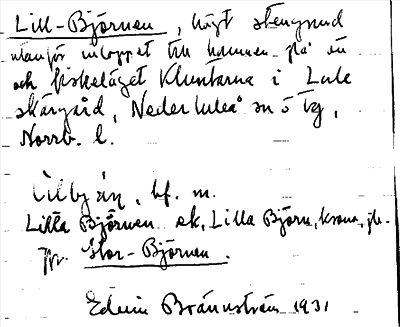 Lill-Björnen, högt stengrund
utanför inloppet till hamnen på ön
och fiskeläget Kluntarna i Lule
skärgård, Nederluleå sn ö tg,
Norrb. l.
bf. m.
Lilla Björnen ek, Lilla Björn, krona, jb.
jfr. Stor-Björnen.
Edvin Brännström 1931